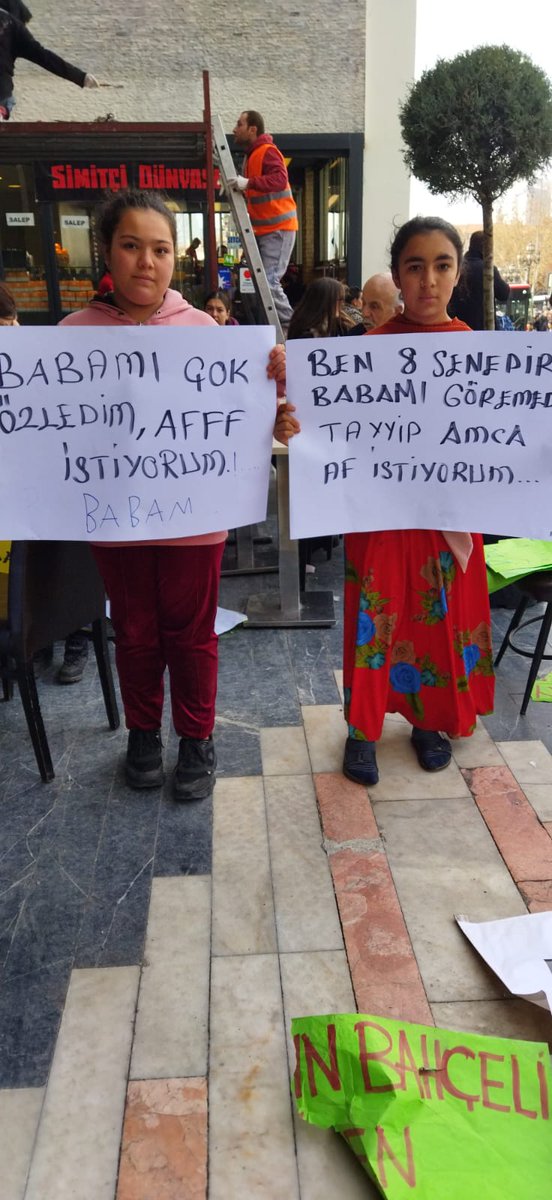 SİMİTÇİ DÜNYASI
SALEP
SALEP
BABAMI ÇOK
ÖZLEDİM, AFFF
İSTİYORUM!...
BABAM
BEN 8 SENEDİR
BABAMI GÖREMED
TAYYİP AMCA
AF İSTİYORUM...
IN BAHÇELİ
EN